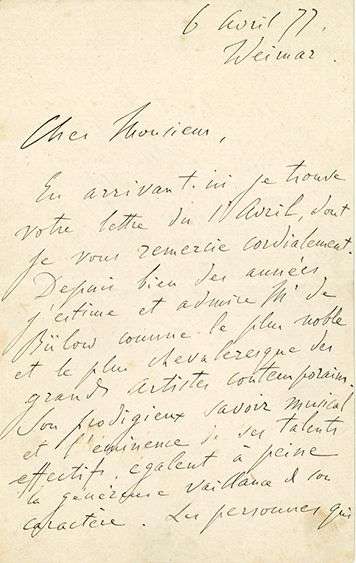 6 Avril 77.
Weimar.
Cher Monsieur,
En arrivant ici je trouve
votre lettre du 1r Avril, dont
je vous remercie cordialement.
Depuis bien des années
j'estime et admire Mr de
Bülow comme le plus noble
et le plus chevaleresque des
grands artistes contemporains.
Son prodigieux savoir musical
et l'éminence de ses talents
effectifs, égalent à peine
la généreuse vaillance de son
caractère. Les personnes qui